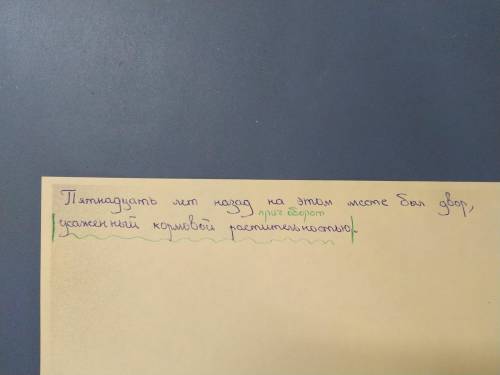 Пятнадцать лет назад на этом месте был двор,
прич оборот
усаженный кормовой растительностью.